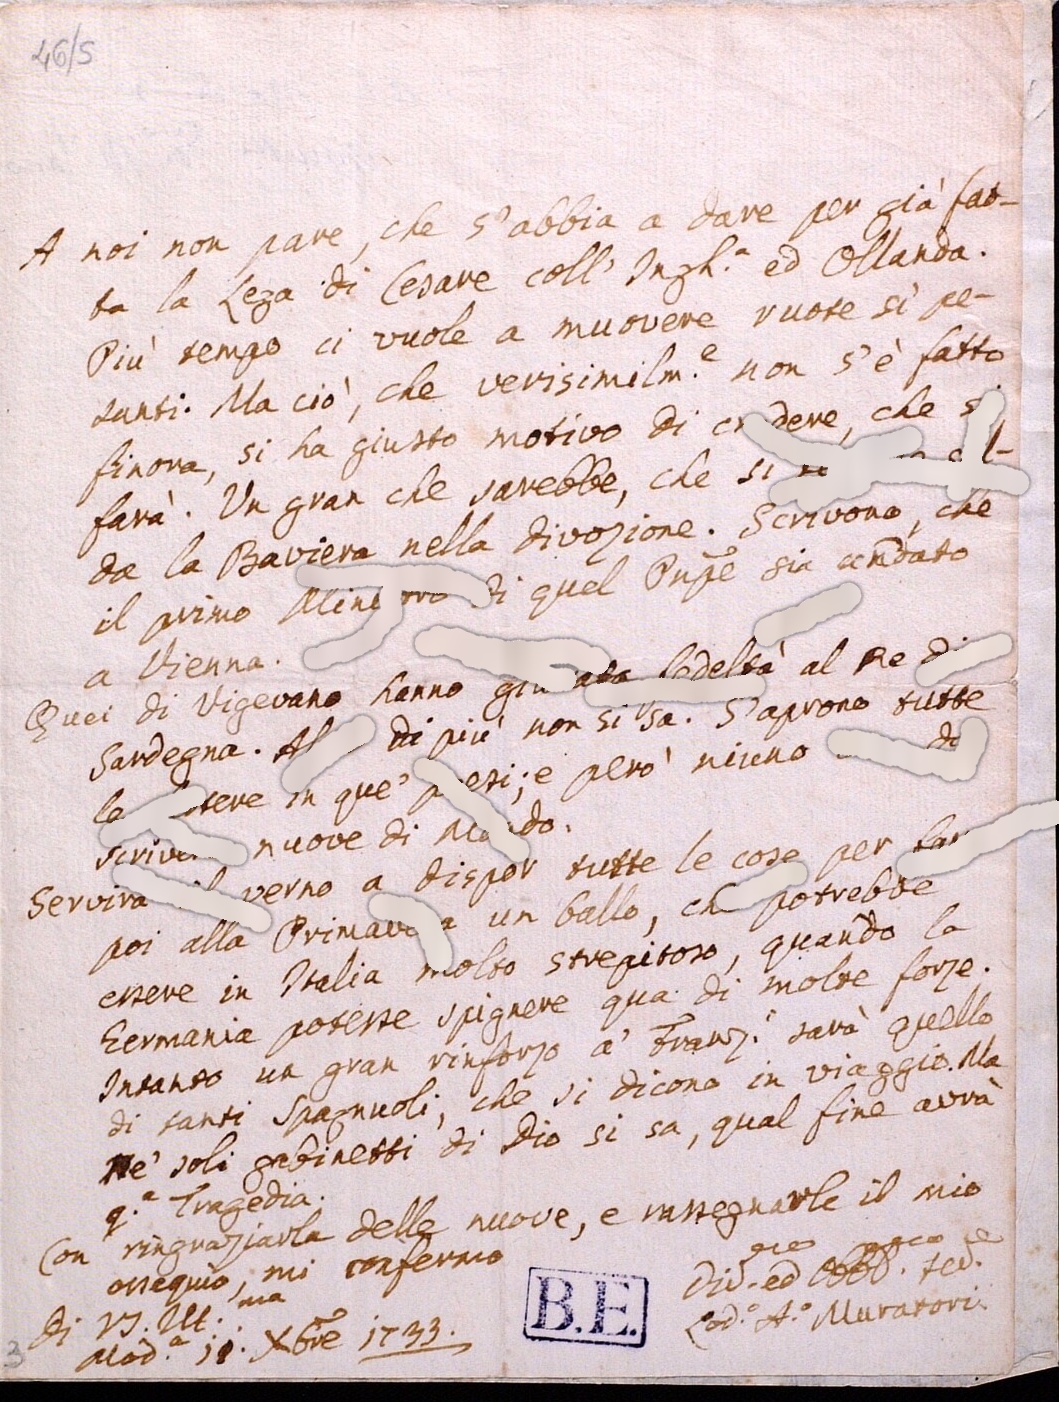 46/5
A noi non pare, che s'abbia a dare per già fat-
ta la Lega di Cesare coll' Ingh.a ed Ollanda.
Più tempo ci vuole a muovere ruote sì pe-
santi. Ma ciò, che verisimilm.e non s'è fatto
finora, si ha giusto motivo di credere, che si
farà. Un gran che sarebbe, che si
da la Baviera nella divozione. Scrivono, che
il primo di quel Pnpe sia andato
a Vienna.
Quei di Vigevano hanno fedeltà al Re di
Sardegna. di più non si sa. S'aprono tutte
le in que' ; e però niuno
nuove di
Servirà il verno a dispor tutte le cose per far
poi alla Primavera un ballo, potrebbe
essere in Italia molto strepitoso, quando la
Germania potesse spignere qua di molte forze.
Intanto un gran rinforzo a' Franz.i sarà quello
di tanti Spagnuoli, che si dicono in viaggio. Ma
ne' soli gabinetti di Dio si sa, qual fine avrà
q.a Tragedia.
Con ringraziarla delle nuove, e rassegnarle il mio
ossequio, mi confermo
Di V.S. Ill.ma
Mod.a Xbre 1733.
Div.mo ed Obb. ser.e
Lod.o A.o Muratori.
B.E.
3